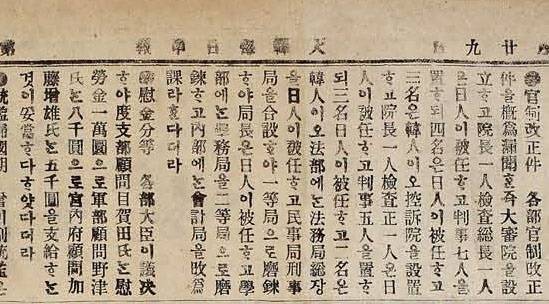 廿九
大韓每日申報
第
●官制改正件 各部官制改正
件을槪爲漏聞ᄒᆞᆫ즉大審院을設
立ᄒᆞ고院長一人檢査總長一人
은日人이被任ᄒᆞ고判事七人을
置ᄒᆞ되四名은日人이被任ᄒᆞ고
三名은韓人이오控訴院을設置
ᄒᆞ고院長一人檢査正一人은日
人이被任ᄒᆞ고判事五人을置ᄒᆞ
되三名日人이被任ᄒᆞ고二名은
韓人이오法部에ᄂᆞᆫ法務局總長
을日人이被任ᄒᆞ고民事局刑事
局을合設ᄒᆞ야一等局으로磨鍊
ᄒᆞ고局長은日人이被任ᄒᆞ고學
部에ᄂᆞᆫ學務局을二等局으로磨
鍊ᄒᆞ고內部에ᄂᆞᆫ會計局을改爲
課라ᄒᆞ다더라
●慰金分等 各部大臣이議决
ᄒᆞ야度支部顧問目賀田氏ᄂᆞᆫ慰
勞金一萬圜으로軍部顧問野津
氏ᄂᆞᆫ八千圜으로宮內府顧問加
藤增雄氏ᄂᆞᆫ五千圜을支給ᄒᆞᄂᆞᆫ
것이妥當ᄒᆞ다ᄒᆞ얏다더라
●統監歸國期